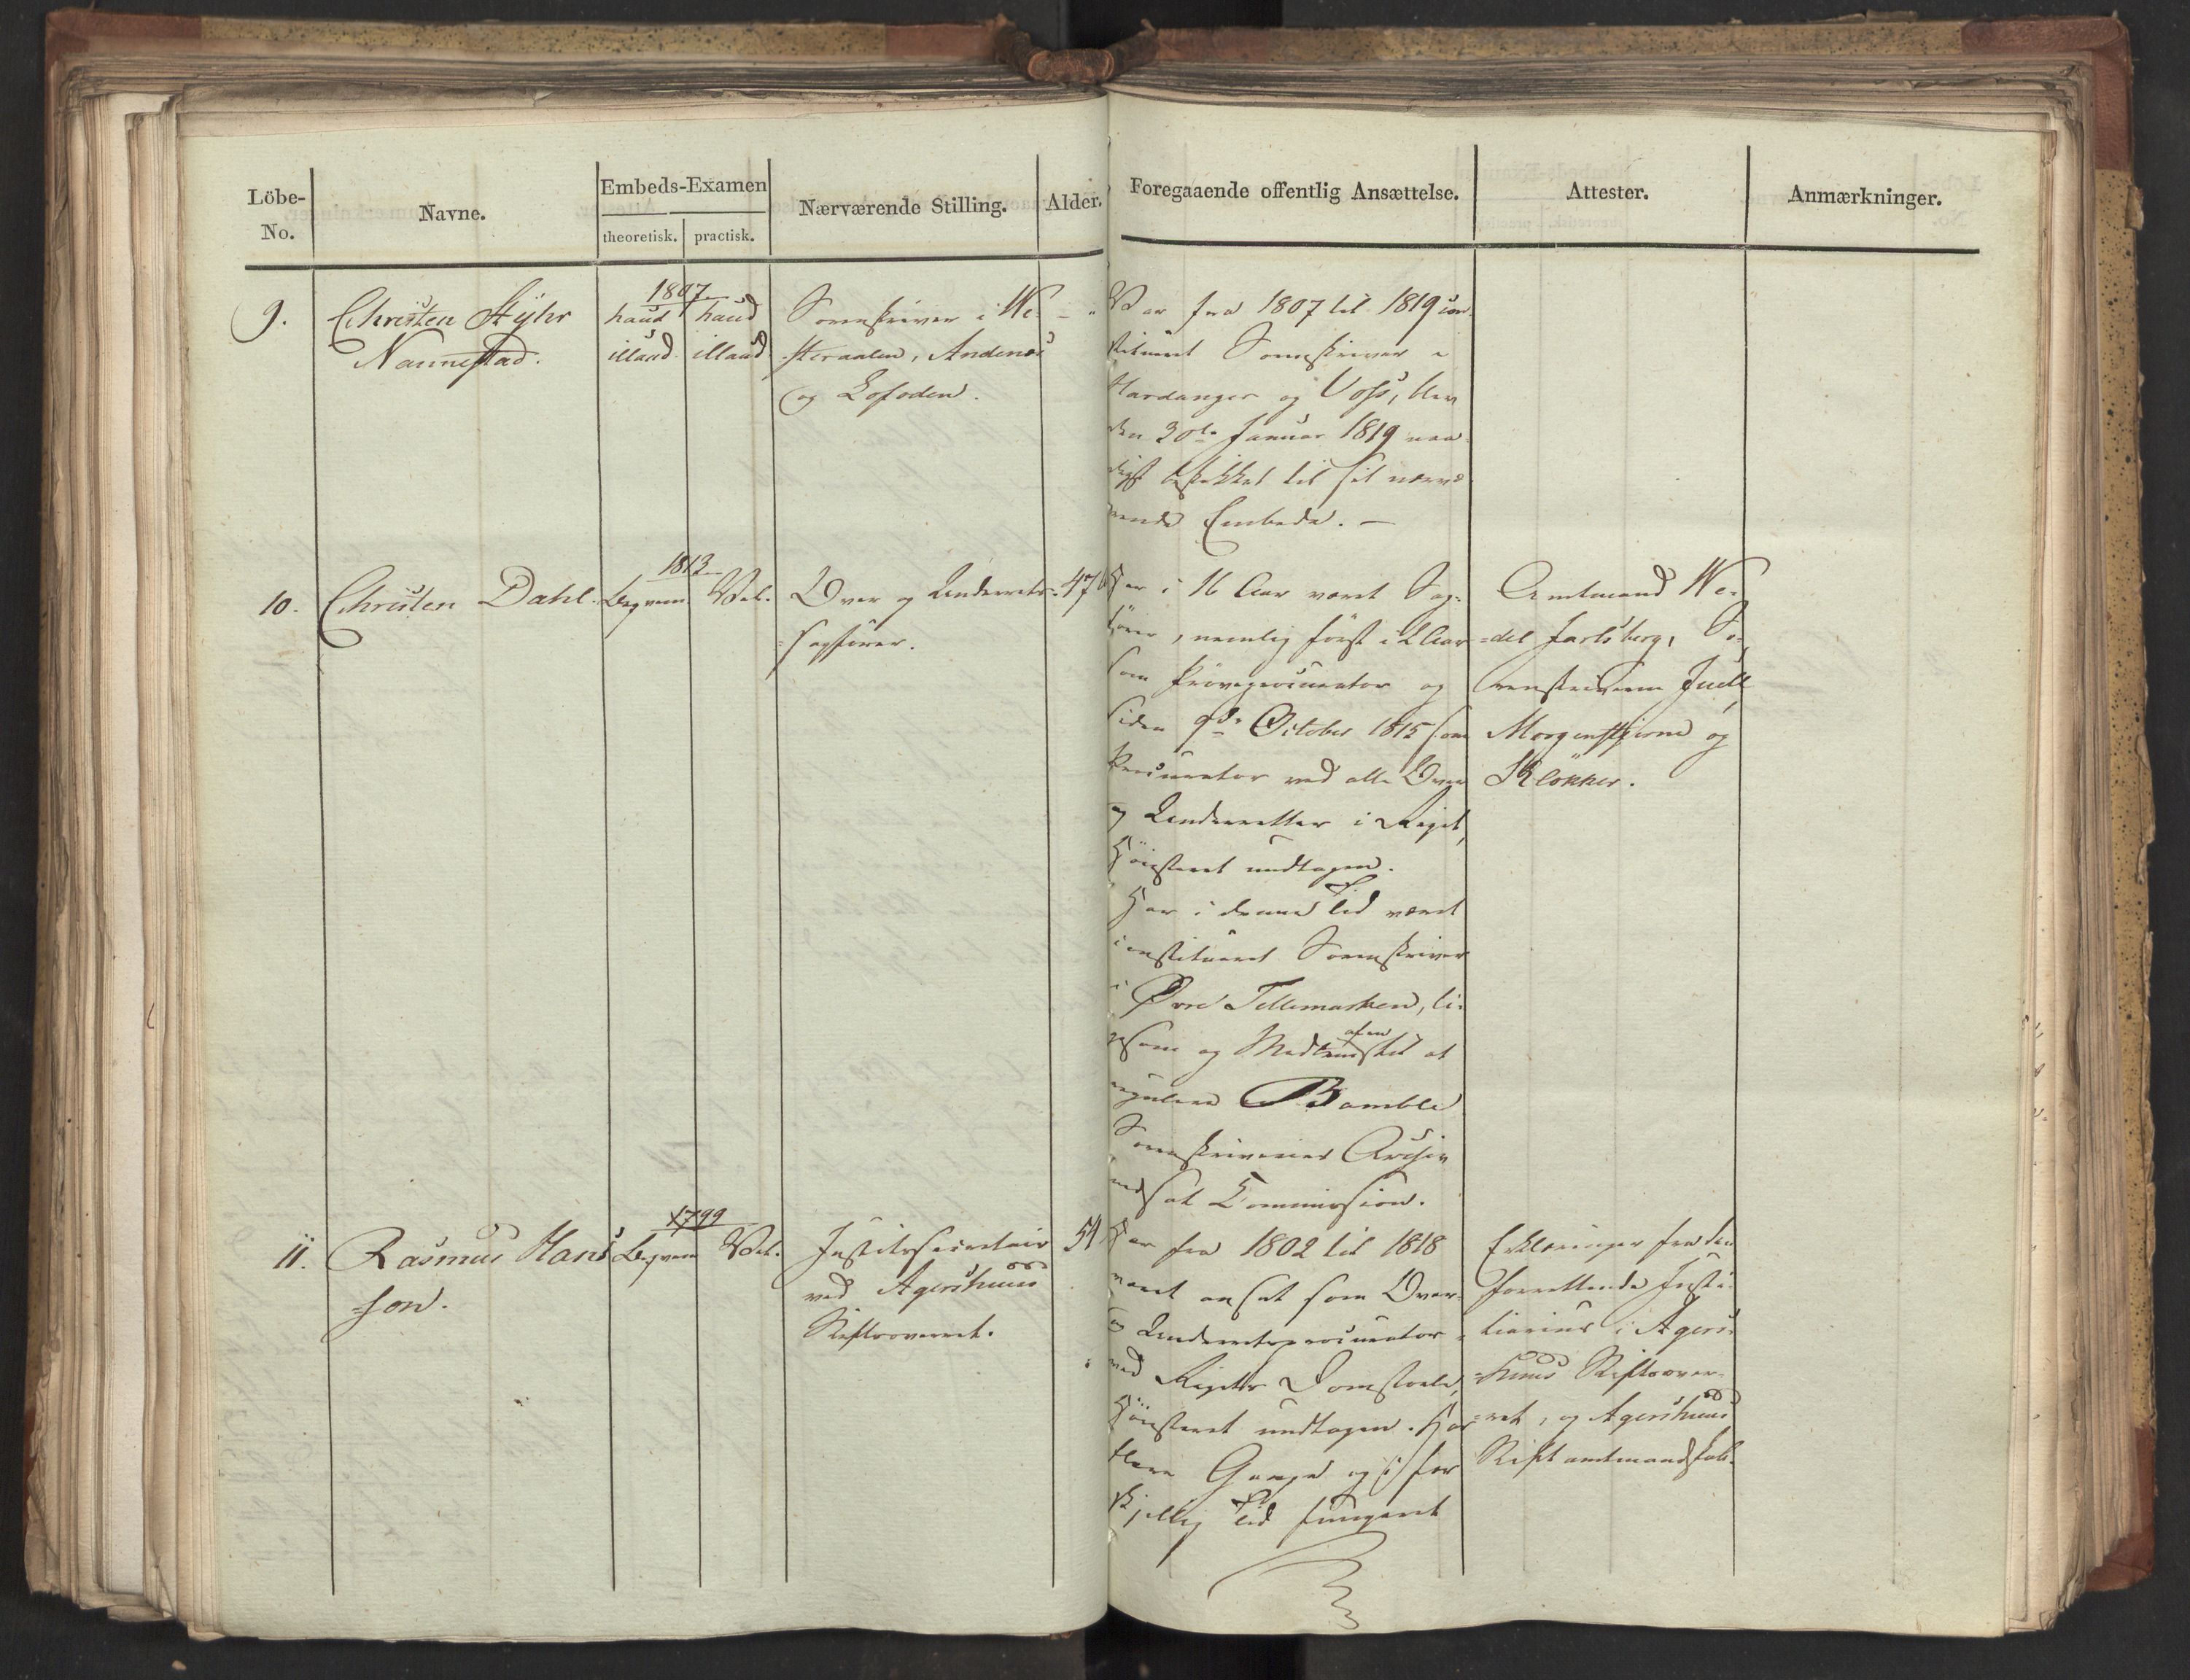 Löbe-
No.
Navne.
Embeds-Examen
theoretisk. practisk.
Nærværende Stilling.
Alder.
Foregaaende offentlig Ansættelse.
Attester.
Anmærkninger.
9.
Christen Hyhr
Nannestad.
1807
haud haud
illaud. illaud
Sorenskriver i We-
steraalen, Andenæs
og Lofoden.
Var fra 1807 til 1819 con-
stitueret Sorenskriver i
Hardanger og Voss, blev
den 30te Januar 1819 naa-
digst beskikket til sit nærvæ-
rende Embede. —
10.
Christen Dahl.
1813
Beqvem. Vel.
Over og Underrets-
sagfører.
47
Har i 16 Aar været Sag-
fører, nemlig først i 2 Aar
som Prøveprocurator og
siden 9de October 1815 som
Procurator ved alle Over
og Underretter i Riget,
Höiesteret undtagen.
Har i denne Tid været
constitueret Sorenskriver
i Øvre Tellemarken, li-
gesom og Medlem af en
regulere Bamble
Sorenskriveries Archiv
nedsat Commission.
Amtmand We-
del Jarlsberg, So-
renskriverne Juell,
Morgenstjerne og
Klökker.
11.
Rasmus Hans-
son.
1799
Beqvem Vel.
Justitssecretair
ved Agershuus
Stiftsoverret.
51
Har fra 1802 til 1818
været ansat som Over-
og Underretsprocurator
ved Rigets Domstole,
Höiesteret undtagen. Har
flere Gange og i for-
skjellig Tid fungeret
Erklæringer fra den
forrettende Justi-
tiarius i Agers-
huus Stiftsover-
ret, og Agershuus
Stiftamtmandskab.